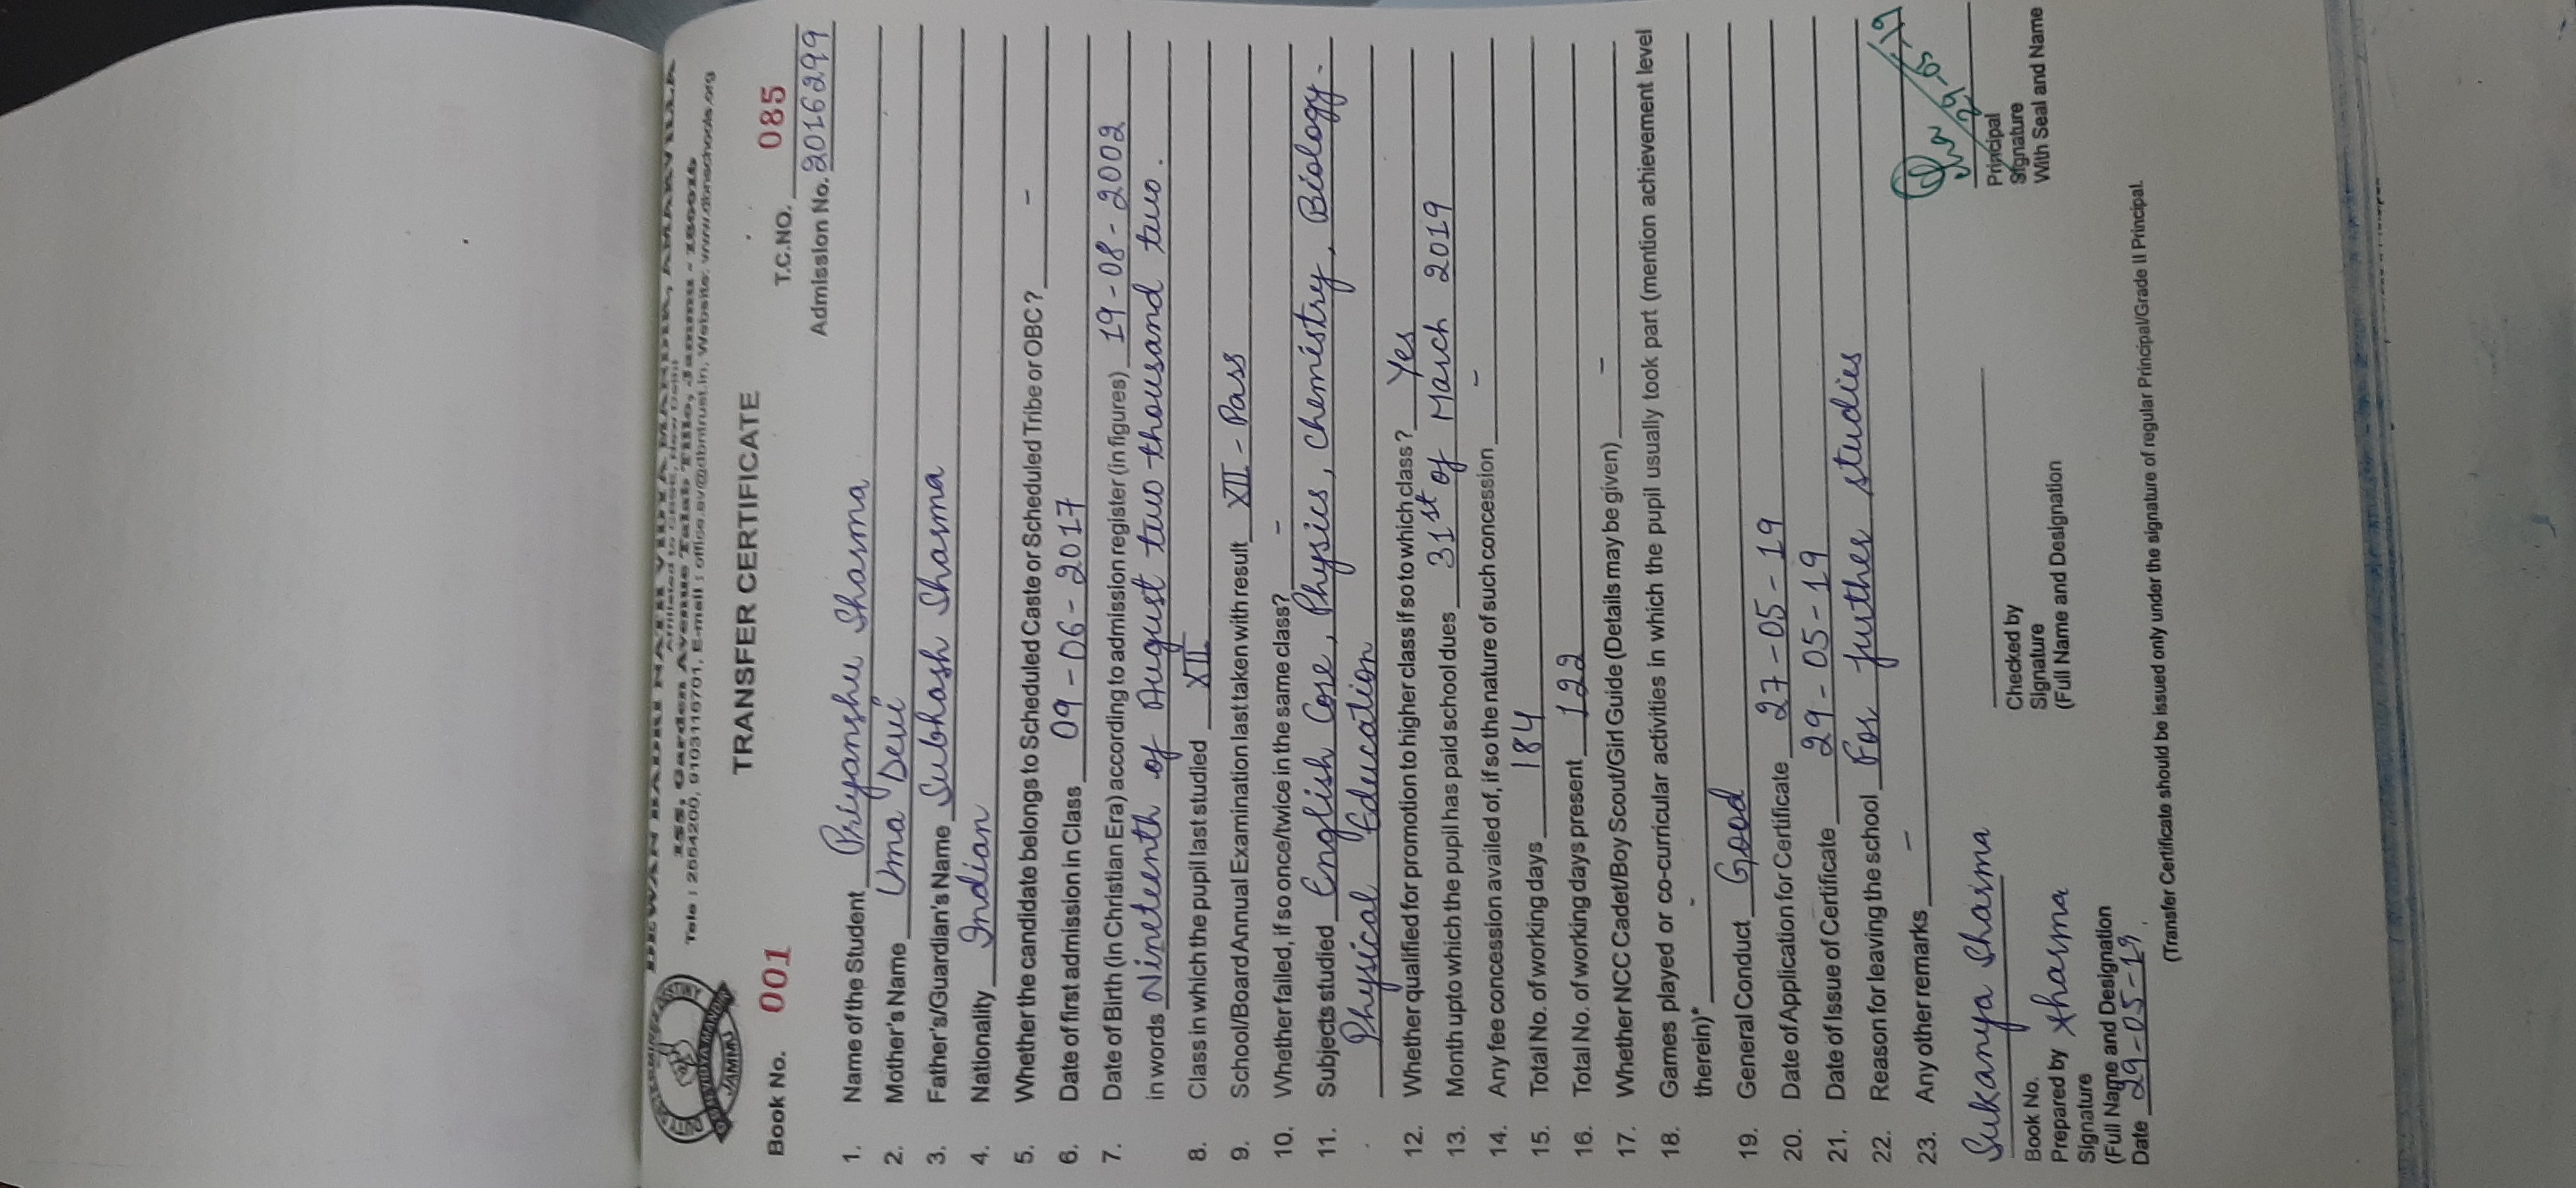 DEWAN BADRI NATH VIDYA MANDIR, AMARVILLA
Affiliated to CBSE, New Delhi
155, Garden Avenue Talab Tillo, Jammu - 180016
Tele : 2554200, 9103116701, E-mail : office.bv@dbntrust.in, Website: www.dbnschools.org
JAMMU
TRANSFER CERTIFICATE
Book No. 001
T.C.NO. 085
Admission No. 2016299
1. Name of the Student Priyanshu Sharma
2. Mother's Name Uma Devi
3. Father's/Guardian's Name Subhash Sharma
4. Nationality Indian
5. Whether the candidate belongs to Scheduled Caste or Scheduled Tribe or OBC? -
6. Date of first admission in Class 09-06-2017
7. Date of Birth (in Christian Era) according to admission register (in figures) 19-08-2002
in words Nineteenth of August two thousand two.
8. Class in which the pupil last studied XII
9. School/Board Annual Examination last taken with result XII - Pass
10. Whether failed, if so once/twice in the same class? -
11. Subjects studied English Core, Physics, Chemistry, Biology.
Physical Education
12. Whether qualified for promotion to higher class if so to which class? Yes
13. Month upto which the pupil has paid school dues 31st of March 2019
14. Any fee concession availed of, if so the nature of such concession -
15. Total No. of working days 184
16. Total No. of working days present 122
17. Whether NCC Cadet/Boy Scout/Girl Guide (Details may be given) -
18. Games played or co-curricular activities in which the pupil usually took part (mention achievement level
therein)* -
19. General Conduct Good
20. Date of Application for Certificate 27-05-19
21. Date of Issue of Certificate 29-05-19
22. Reason for leaving the school For further studies
23. Any other remarks -
Sukanya Sharma
Book No.
Prepared by Sharma
Signature
(Full Name and Designation
Date 29-05-19.
Checked by
Signature
(Full Name and Designation
29-05-19
Principal
Signature
With Seal and Name
(Transfer Certificate should be issued only under the signature of regular Principal/Grade II Principal.